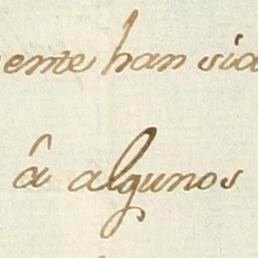 ente han sid
â algunos